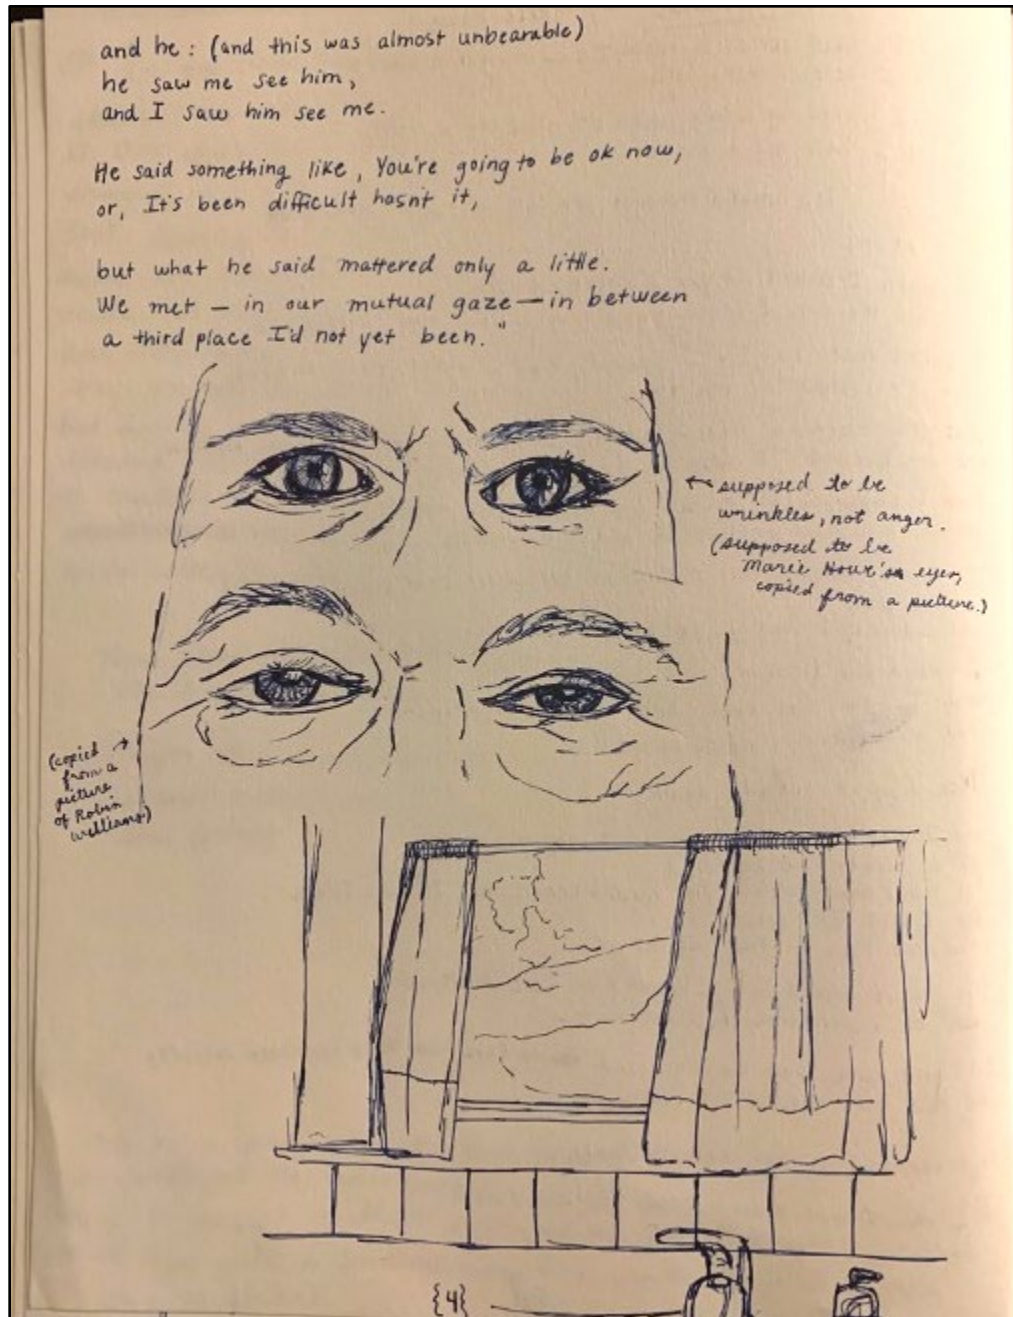 and he: (and this was almost unbearable)
he saw me see him,
and I saw him see me.
He said something like, You're going to be ok now,
or, It's been difficult hasn't it,
but what he said mattered only a little.
We met — in our mutual gaze — in between
a third place I'd not yet been."
← supposed to be
wrinkles, not anger.
(supposed to be
Marie Howe's eyes,
copied from a picture.)
(copied →
from a
picture
of Robin
Williams)
{4}